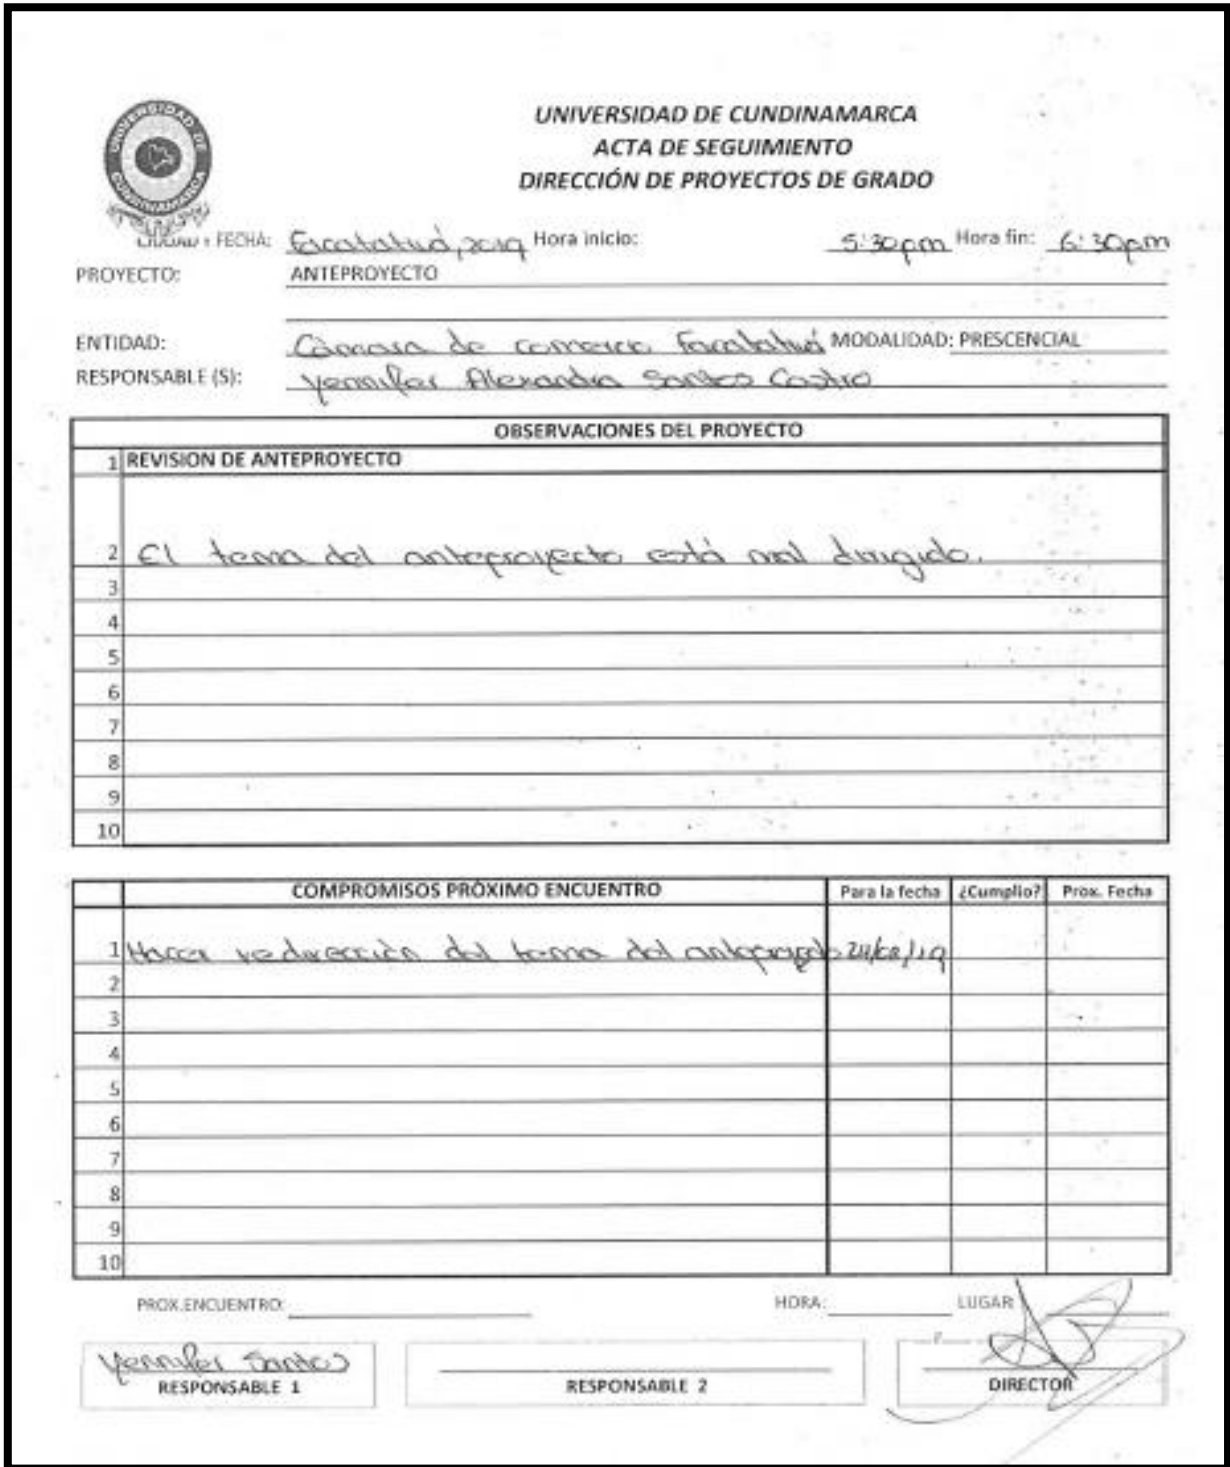 UNIVERSIDAD DE CUNDINAMARCA
UNIVERSIDAD DE CUNDINAMARCA
ACTA DE SEGUIMIENTO
DIRECCIÓN DE PROYECTOS DE GRADO
CIUDAD Y FECHA: Facatativá, 2019 Hora inicio: 5:30pm Hora fin: 6:30pm
PROYECTO: ANTEPROYECTO
ENTIDAD: Cámara de comercio Facatativá MODALIDAD: PRESCENCIAL
RESPONSABLE (S): Yennifer Alexandra Santos Castro
OBSERVACIONES DEL PROYECTO
1 REVISION DE ANTEPROYECTO
2 El tema del anteproyecto está mal dirigido.
3
4
5
6
7
8
9
10
COMPROMISOS PRÓXIMO ENCUENTRO Para la fecha ¿Cumplio? Prox. Fecha
1 Hacer redirección del tema del anteproyecto
2
3
4
5
6
7
8
9
10
PROX.ENCUENTRO: HORA: LUGAR:
Yennifer Santos
RESPONSABLE 1 RESPONSABLE 2 DIRECTOR